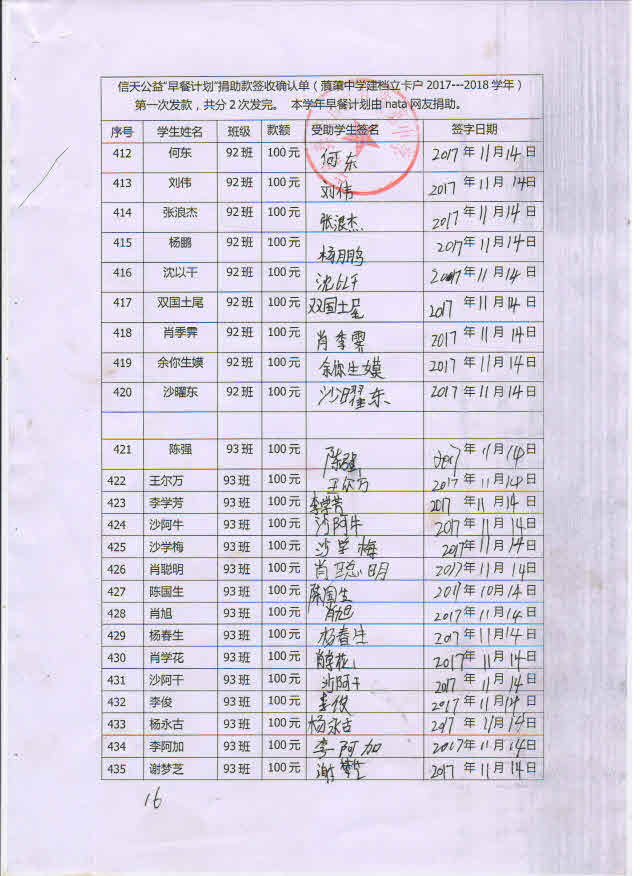 信天公益“早餐计划”捐助款签收确认单（蒗蕖中学建档立卡户 2017---2018 学年）
第一次发款，共分 2 次发完。 本学年早餐计划由 nata 网友捐助。
序号 学生姓名 班级 款额 受助学生签名 签字日期
412 何东 92 班 100 元 何东 2017 年 11 月 14 日
413 刘伟 92 班 100 元 刘伟 2017 年 11 月 14 日
414 张浪杰 92 班 100 元 张浪杰 2017 年 11 月 14 日
415 杨鹏 92 班 100 元 杨鹏 2017 年 11 月 14 日
416 沈以干 92 班 100 元 沈以干 2017 年 11 月 14 日
417 双国土尾 92 班 100 元 双国土尾 2017 年 11 月 14 日
418 肖季霁 92 班 100 元 肖季霁 2017 年 11 月 14 日
419 余你生嫫 92 班 100 元 余你生嫫 2017 年 11 月 14 日
420 沙曜东 92 班 100 元 沙曜东 2017 年 11 月 14 日
421 陈强 93 班 100 元 陈强 2017 年 11 月 14 日
422 王尔万 93 班 100 元 王尔万 2017 年 11 月 14 日
423 李学芳 93 班 100 元 李学芳 2017 年 11 月 14 日
424 沙阿牛 93 班 100 元 沙阿牛 2017 年 11 月 14 日
425 沙学梅 93 班 100 元 沙学梅 2017 年 11 月 14 日
426 肖聪明 93 班 100 元 肖聪明 2017 年 11 月 14 日
427 陈国生 93 班 100 元 陈国生 2017 年 10 月 14 日
428 肖旭 93 班 100 元 肖旭 2017 年 11 月 14 日
429 杨春生 93 班 100 元 杨春生 2017 年 11 月 14 日
430 肖学花 93 班 100 元 肖学花 2017 年 11 月 14 日
431 沙阿干 93 班 100 元 沙阿干 2017 年 11 月 14 日
432 李俊 93 班 100 元 李俊 2017 年 11 月 14 日
433 杨永古 93 班 100 元 杨永古 2017 年 11 月 14 日
434 李阿加 93 班 100 元 李阿加 2017 年 11 月 14 日
435 谢梦芝 93 班 100 元 谢梦芝 2017 年 11 月 14 日
16